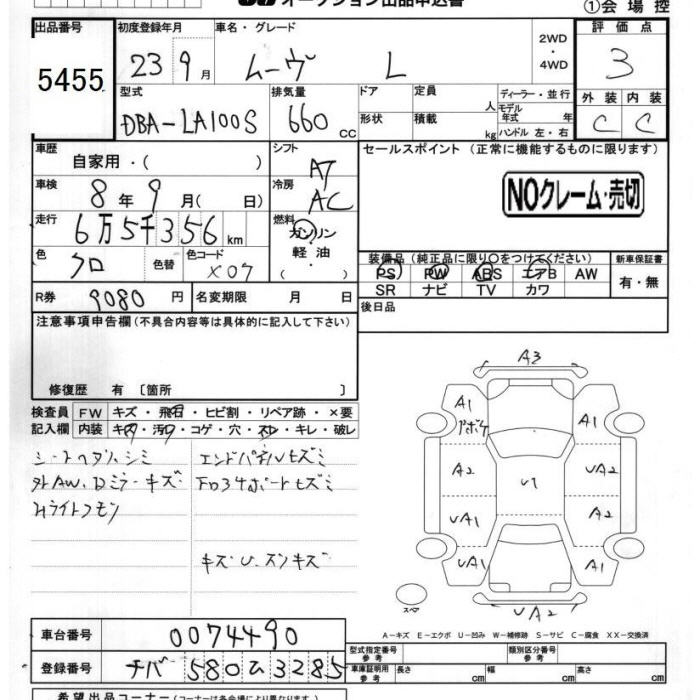 オークション出品申込書
①会場控
出品番号 初度登録年月 車名・グレード 評価点
5455 23 9月 ムーヴ L 2WD・4WD 3
型式 排気量 ドア 定員 人 ディーラー・並行 外装 内装
DBA-LA100S 660 CC 形状 積載 kg モデル年式 年 ハンドル 左・右 C C
車歴 自家用・( ) シフト AT セールスポイント (正常に機能するものに限ります)
車検 8年9月( 日) 冷房 AC NOクレーム・売切
走行 6万5千356 km 燃料 ガソリン
軽油
・( )
色 クロ 色替 色コード X07 装備品 (純正品に限り○をつけてください) 新車保証書
PS PW ABS エアB AW 有・無
SR ナビ TV カワ
R券 9080 円 名変期限 月 日 後日品
注意事項申告欄(不具合内容等は具体的に記入して下さい)
修復歴 有 [箇所 ]
検査員 FW キズ・飛石・ヒビ割・リペア跡・×要
記入欄 内装 キズ・汚れ・コゲ・穴・スレ・キレ・破レ
シートヘタリ、シミ エンドパネルヒズミ
外AW、Dミラーキズ
Hライトクモリ
キズU、ズレキズ
A3
A1 A1
A2 UA2
U1
UA1 A2
UA1 UA1
スペア UA2
A-キズ E-エクボ U-凹み W-補修跡 S-サビ C-腐食 XX-交換済
車台番号 0074490
型式指定番号 参考 類別区分番号 参考
登録番号 チバ 580 ひ 3285
車庫証明用 参考 長さ cm 幅 cm 高さ cm
希望出品コーナー